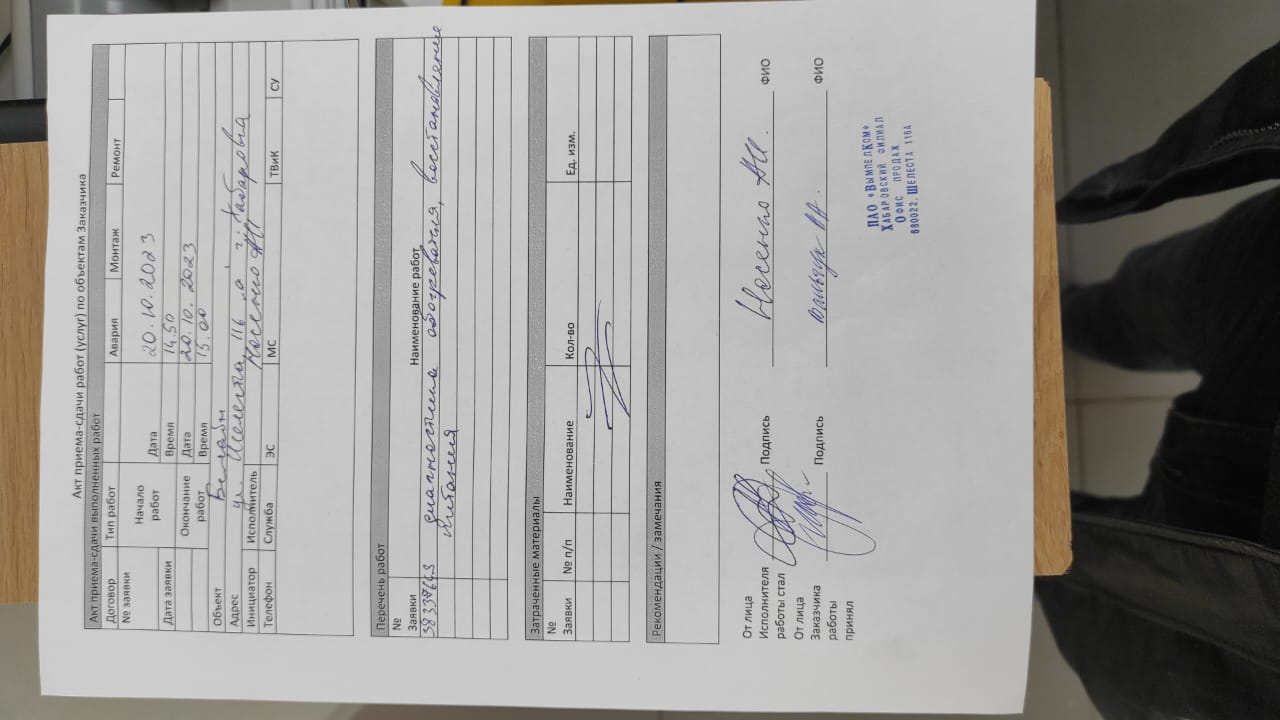 Акт приема-сдачи работ (услуг) по объектам Заказчика
Акт приема-сдачи выполненных работ
Договор Тип работ Авария Монтаж Ремонт
№ заявки Начало работ Дата 20.10.2023
Дата заявки Время 14.50
Окончание работ Дата 20.10.2023
Время 15.00
Объект Билайн
Адрес ул. Шелеста 116 "а" г. Хабаровск
Инициатор Исполнитель Носенко
Телефон Служба ЭС МС ТВиК СУ
Перечень работ
№ Заявки Наименование работ
диагностика обогревания, восстановление
питания
Затраченные материалы
№ Заявки № п/п Наименование Кол-во Ед. изм.
Рекомендации / замечания
От лица
Исполнителя
работы стал Подпись Носенко ФИО
От лица
Заказчика
работы
принял Подпись ФИО
ПАО «ВымпелКом»
Хабаровский филиал
Офис продаж
680022. Шелеста 116А